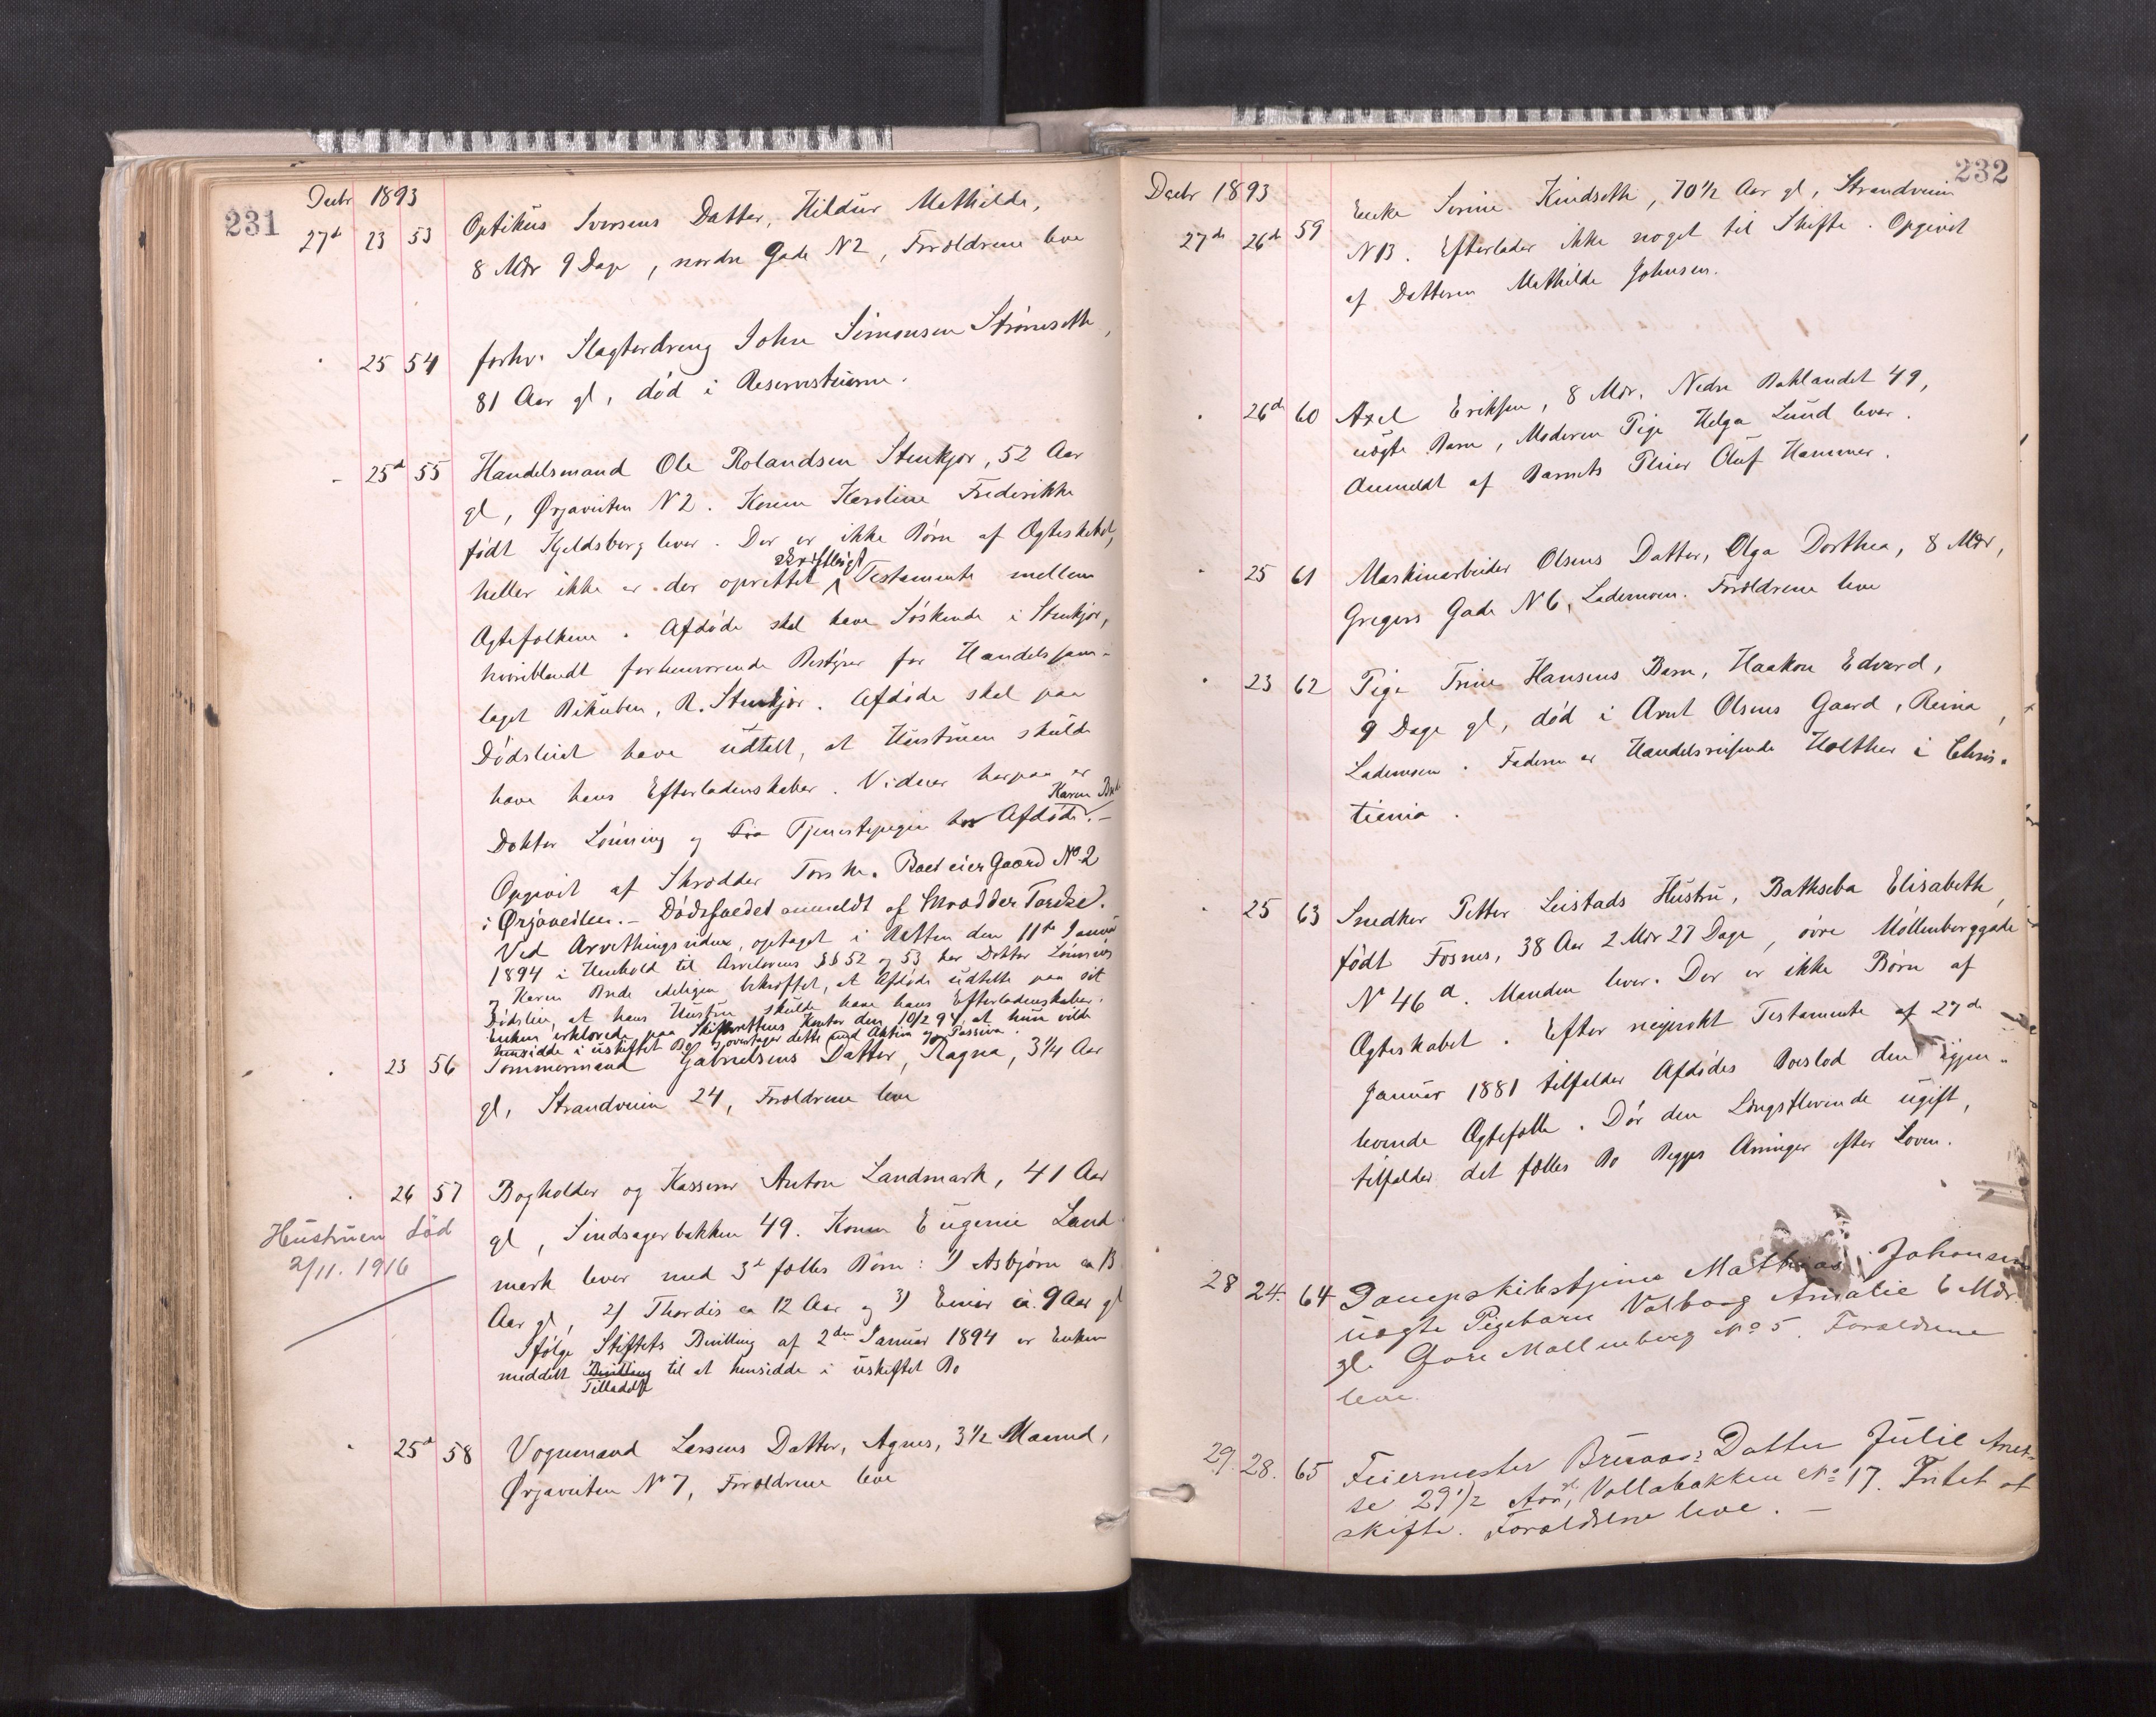 231
Decbr 1893
27d 23 53 Optikus Iversens Datter, Hildur Mathilde,
8 Mdr 9 Dage, nordre Gade N 2, Forældrene leve
" 25 54 forhv. Slagterdreng John Simonsen Strømseth,
81 Aar gl, død i Reservestuerne.
" 25d 55 Handelsmand Ole Rolandsen Stenkjær, 52 Aar
gl, Ørjaveiten N 2. Konen Karoline Frederikke
født Kjeldsberg lever. Der er ikke Børn af Ægteskabet,
skriftligt
heller ikke er der oprettet Testamente mellem
Ægtefolkene. Afdøde skal have Søskende i Stenkjær,
hvoriblandt forhenværende Bestyrer for Handelssam-
laget Bikuben, R. Stenkjær. Afdøde skal paa
Dødsleiet have udtalt, at Hustruen skulde
have hans Efterladenskaber. Vidner herpaa er
Karen
Doktor Lønning og Tjenestepigen hos Afdøde.-
Opgivet af Skrædder Torske. Boet eier Gaard No 2
i Ørjaveiten.- Dødsfaldet anmeldt af Skrædder Torske.
Ved Arvethingsvidne, optaget i Retten den 11te Januar
1894 i Henhold til Arvelovens §§ 52 og 53 har Doktor Lønning
og Karen Brede edeligen bekræftet, at Afdøde udtalte paa sit
Dødsleie, at hans Hustru skulde have hans Efterladenskaber.
Enken erklærede paa Skifterettens Kontor den 10/2 94, at hun vilde
hensidde i uskiftet Bo og overtager dette med Aktiva og Passiva.
" 23 56 Tømmermand Gabrielsens Datter, Ragna, 3 1/4 Aar
gl, Strandveien 24, Forældrene leve
" 26 57 Bogholder og Kasserer Anton Landmark, 41 Aar
gl, Sindsagerbakken 49. Konen Eugenie Land-
mark lever med 3d fælles Børn: 1) Asbjørn ca 13
Aar gl, 2) Thordis ca 12 Aar og 3) Einar ca. 9 Aar gl
Ifølge Stiftets Bevilling af 2den Januar 1894 er Enken
meddelt Bevilling til at hensidde i uskiftet Bo
Tilladelse
Hustruen død
2/11. 1916
" 25d 58 Vognmand Larsens Datter, Agnes, 3 1/2 Maaned,
Ørjaveiten N 7, Forældrene leve
232
Decbr 1893
27de 26de 59 Enke Serine Kindseth, 70 1/2 Aar gl, Strandveien
N 13. Efterlader ikke noget til Skifte. Opgivet
af Datteren Mathilde Johnsen.
" 26de 60 Axel Eriksen, 8 Mdr. Nedre Baklandet 49,
uægte Barn, Moderen Pige Helga Lund lever.
Anmeldt af Barnets Pleier Oluf Hammer.
" 25 61 Maskinarbeider Olsens Datter, Olga Dorthea, 8 Mdr,
Gregers Gade N 6, Lademoen. Forældrene leve
" 23 62 Pige Trine Hansens Barn, Haakon Edvard,
9 Dage gl, død i Arnt Olsens Gaard, Reina,
Lademoen. Faderen er Handelsreisende Holther i Chris-
tiania.
" 25 63 Snedker Petter Leistads Hustru, Bathseba Elisabeth,
født Fosnes, 38 Aar 2 Mdr 27 Dage, øvre Møllenberggade
N 46 a. Manden lever. Der er ikke Børn af
Ægteskabet. Efter reciprokt Testamente af 27de
Januar 1881 tilfalder Afdødes Boeslod den igjen-
levende Ægtefælle. Dør den Længstlevende ugift,
tilfalder det fælles Bo Begges Arvinger efter Loven.
28 24. 64 Dampskibstjener Mathias Johansens
uægte Pigebarn Valborg Amalie 6 Mdr.
gl. Møllenberg No 5. Forældrene
leve.
29. 28. 65 Feiermester Bruaas: Datter Julie Anet-
te 29 1/2 Aar gl, Vollabakken No 17. Intet at
skifte. Forældrene leve.-